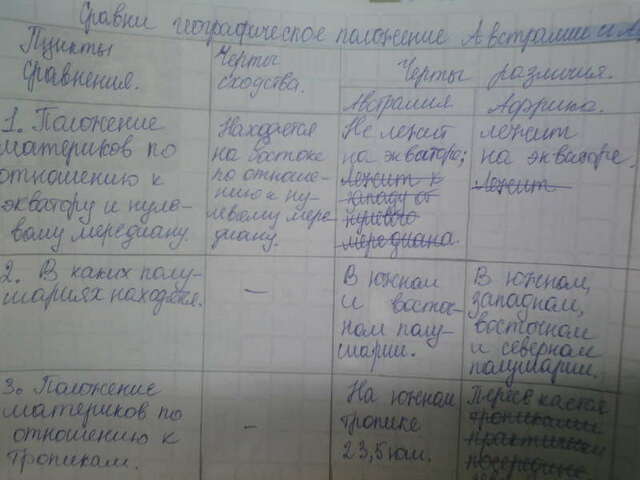 Сравни географическое положение Австралии и А
Пункты сравнения.
Черты сходства.
Черты различия.
Австралия
Африка.
1. Положение
материков по
отношению к
экватору и нуле-
вому меридиану.
Находятся
на востоке
по отноше-
нию к ну-
левому мери-
диану.
Не лежит
на экваторе;
Лежит к
западу от
нулевого
меридиана
лежит
на экваторе.
Лежит
2. В каких полу-
шариях находятся.
–
В южном
и восточ-
ном полу-
шарии.
В южном,
западном,
восточном
и северном
полушарии.
3. Положение
материков по
отношению к
тропикам.
–
На южном
тропике
23,5 юш.
Пересекается
тропиками
практически
посередине